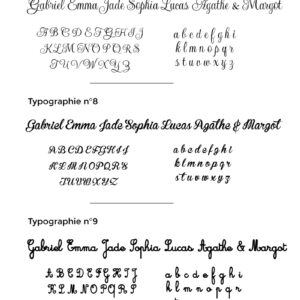 Gabriel Emma Jade Sophia Lucas Agathe & Margot
A B C D E F G H I J
K L M N O P Q R S
T U V W X Y Z
a b c d e f g h i
k l m n o p q r
s t u v w x y z
Typographie n°8
Gabriel Emma Jade Sophia Lucas Agathe & Margot
A B C D E F G H I J
K L M N O P Q R S
T U V W X Y Z
a b c d e f g h i
k l m n o p q r
s t u v w x y z
Typographie n°9
Gabriel Emma Jade Sophia Lucas Agathe & Margot
A B C D E F G H I J
K L M N O P Q R S
a b c d e f g h i
k l m n o p q r
s t u v w x y z